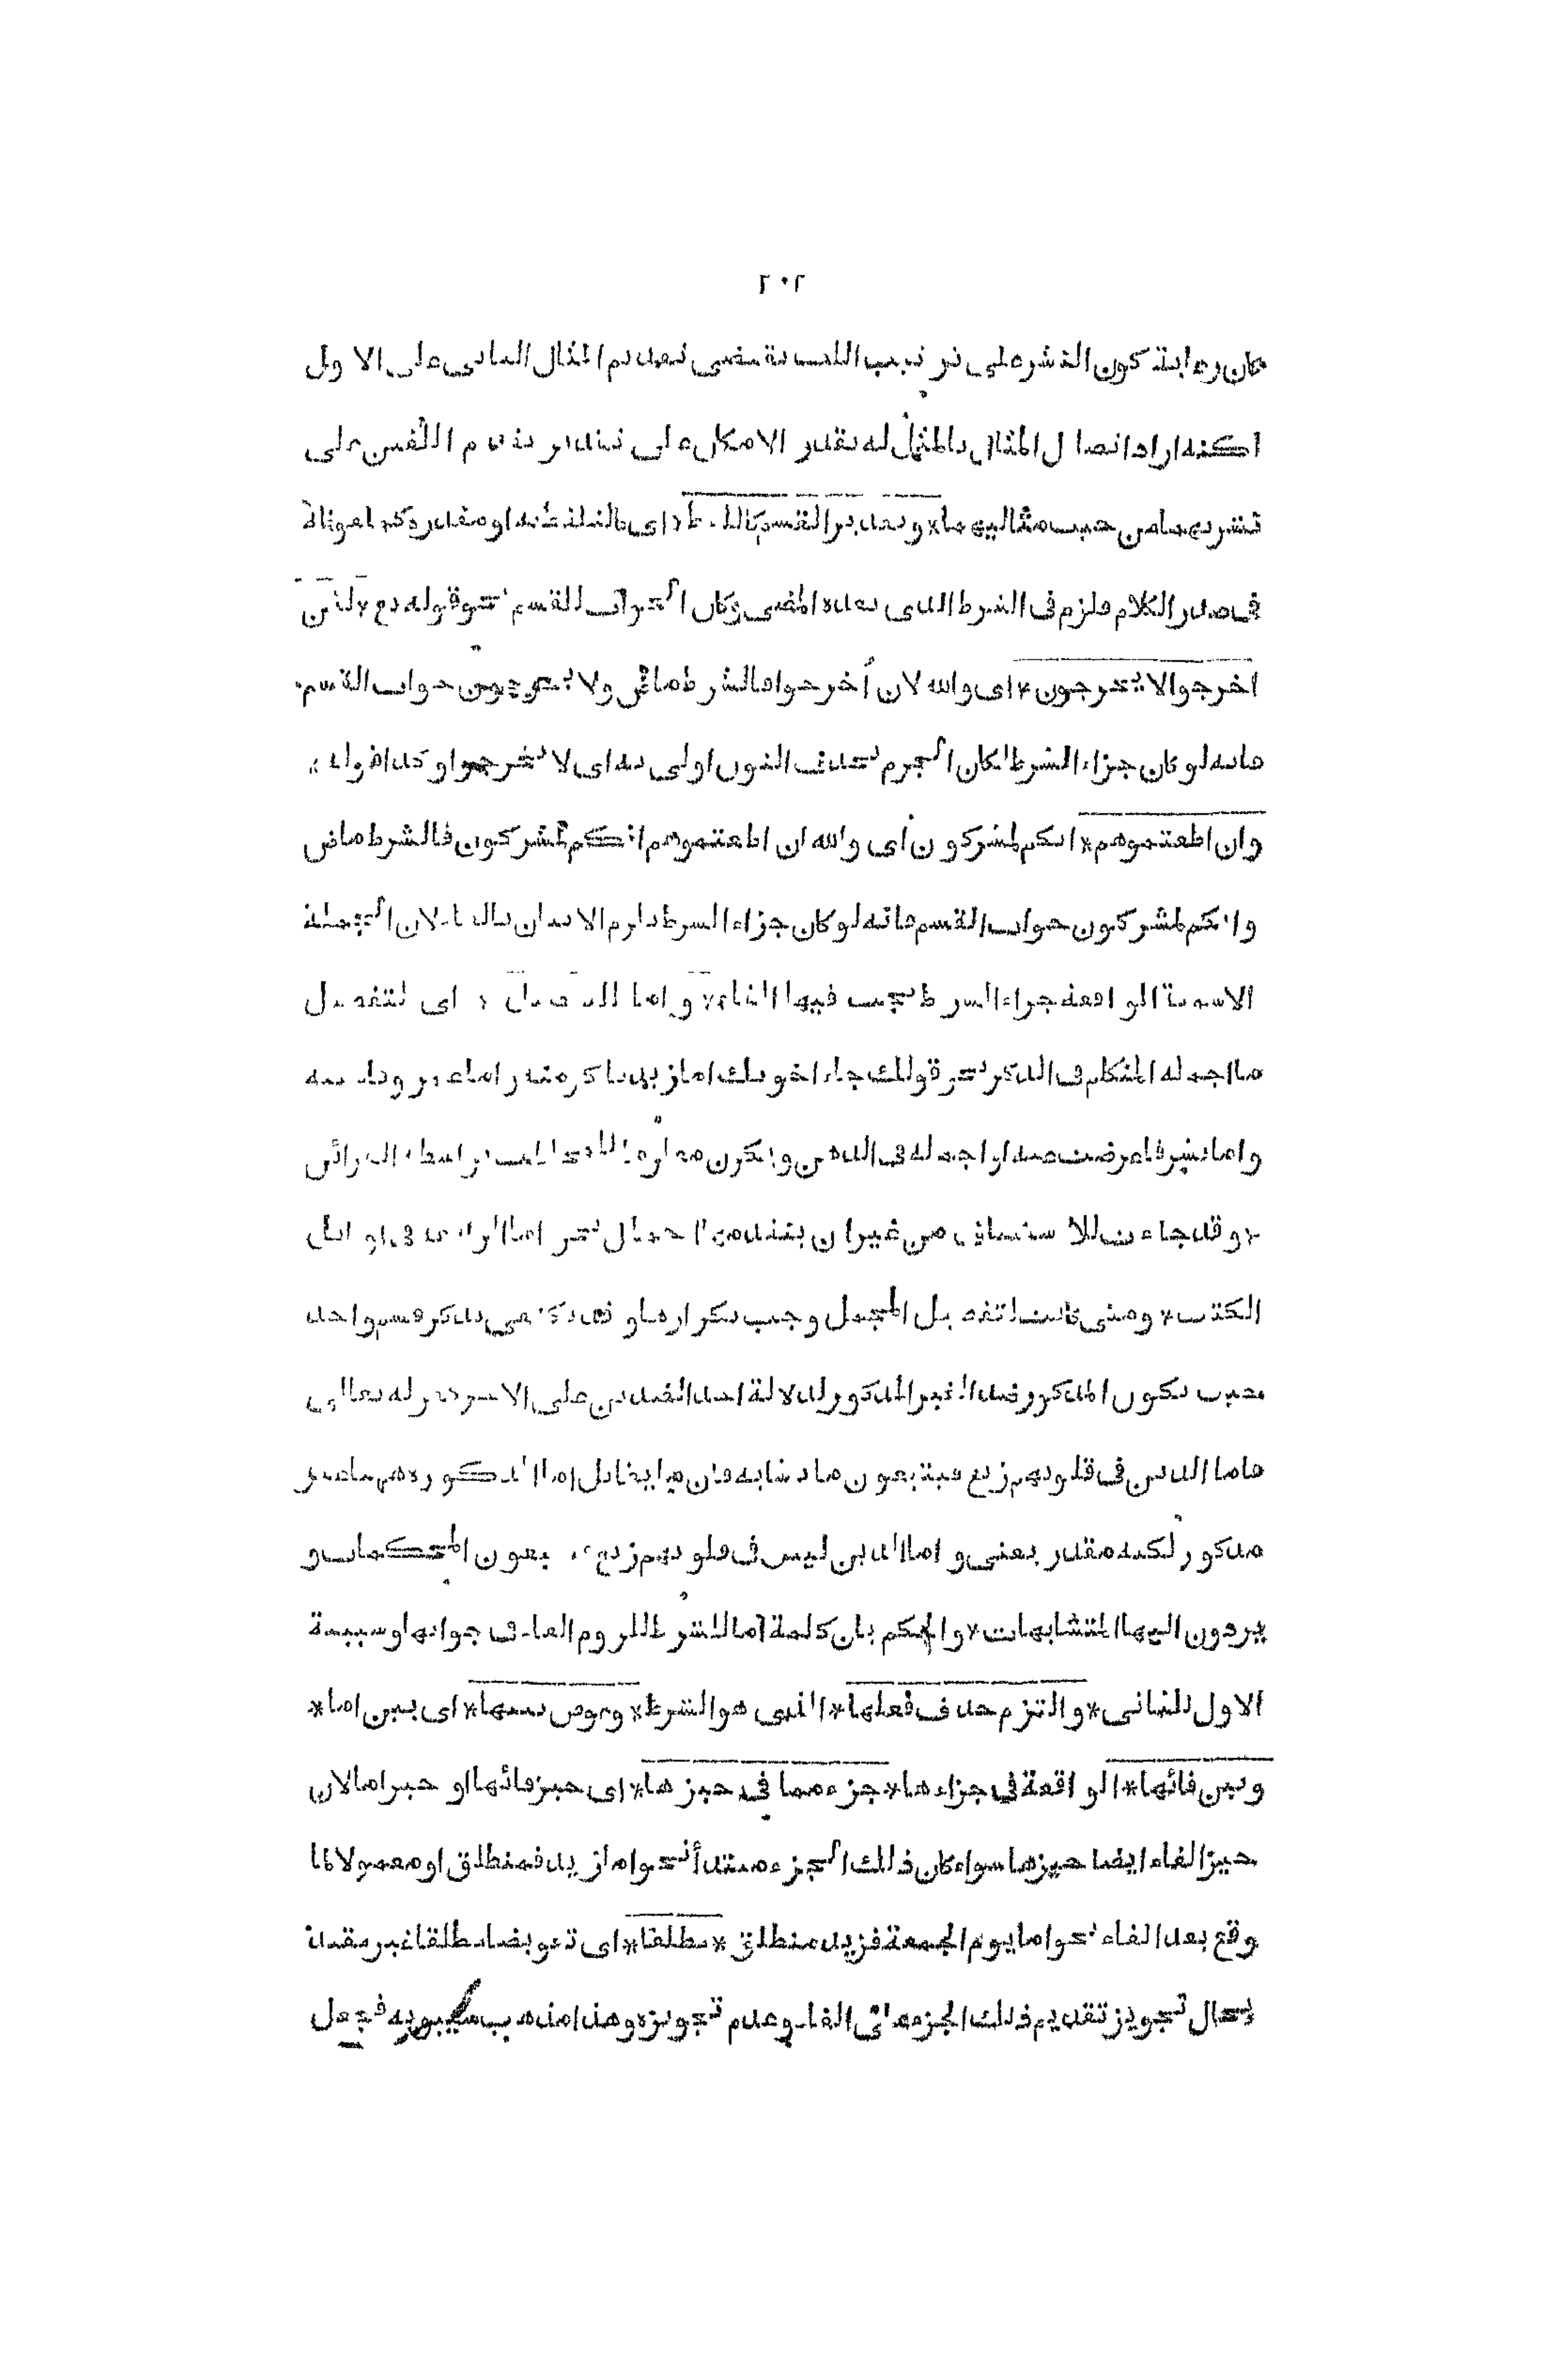 ٢٠٢
فان رعاية كون النشر على ترتيب اللف يقتضى تقديم المثال الثانى على الاول
لكنه اراد اتصال المثال بالممثل له بقدر الامكان على تقدير تقديم اللف على
نشر بهما من حيث مثاليهما * وتقدير القسم كاللفظ * اى كالتلفظ به او مقدر وكذا
فى صدر الكلام فلزم فى الشرط الذى بعده المضى وكان الجواب للقسم نحو قوله تع * لئن
اخرجوا لا يخرجون * اى والله لان أخرجوا فالشرط ماض ولا يخرجون جواب القسم
فانه لو كان جزاء الشرط لكان الجزم بحذف النون اولى به اى لا يخرجوا وكذا قوله *
وان اطعتموهم * انكم لمشركون اى والله ان اطعتموهم انكم لمشركون فالشرط ماض
وانكم لمشركون جواب القسم فانه لو كان جزاء الشرط يلزم الاتيان بالفاء لان الجملة
الاسمية الواقعة جزاء الشرط يجب فيها الفاء * واما للتفصيل * اى لتفصيل
ما اجمله المتكلم فى الذكر نحو قولك جاء اخوتك اما زيد فاكرمته واما عمرو فاهنته
واما بشر فاعرضت عنه او اجمله فى الذهن ويكون معلوما للمخاطب بواسطة القرائن
* وقد جاءت للاستيناف من غير ان يتقدمها اجمال نحو اما الواقعة فى اوائل
الكتب * ومتى كانت لتفصيل المجمل وجب تكرارها وقد يكتفى بذكر قسم واحد
بحيث يكون المذكور ضد الغير المذكور لدلالة احد الضدين على الاخر كقوله تعالى
فاما الذين فى قلوبهم زيغ فيتبعون ما تشابه فان ما يقابل اما المذكورة ههنا غير
مذكور لكنه مقدر يعنى واما الذين ليس فى قلوبهم زيغ فيتبعون المحكمات و
يردون اليها المتشابهات * والحكم بان كلمة اما للشرط للزوم الفاء فى جوابها وسببية
الاول للثانى * والتزم حذف فعلها * الذى هو الشرط * وعوض بينهما * اى بين اما *
وبين فائها * الواقعة فى جزاءها * جزء مما فى حيزها * اى حيز فائها او حيز اما لان
حيز الفاء ايضا حيزها سواء كان ذلك الجزء مبتدأ نحو اما زيد فمنطلق او معمولا لما
وقع بعد الفاء نحو اما يوم الجمعة فزيد منطلق * مطلقا * اى تعويضا مطلقا غير مقيد
بحال تجويز تقديم ذلك الجزء على الفاء وعدم تجويزه وهذا مذهب سيبويه فجعل